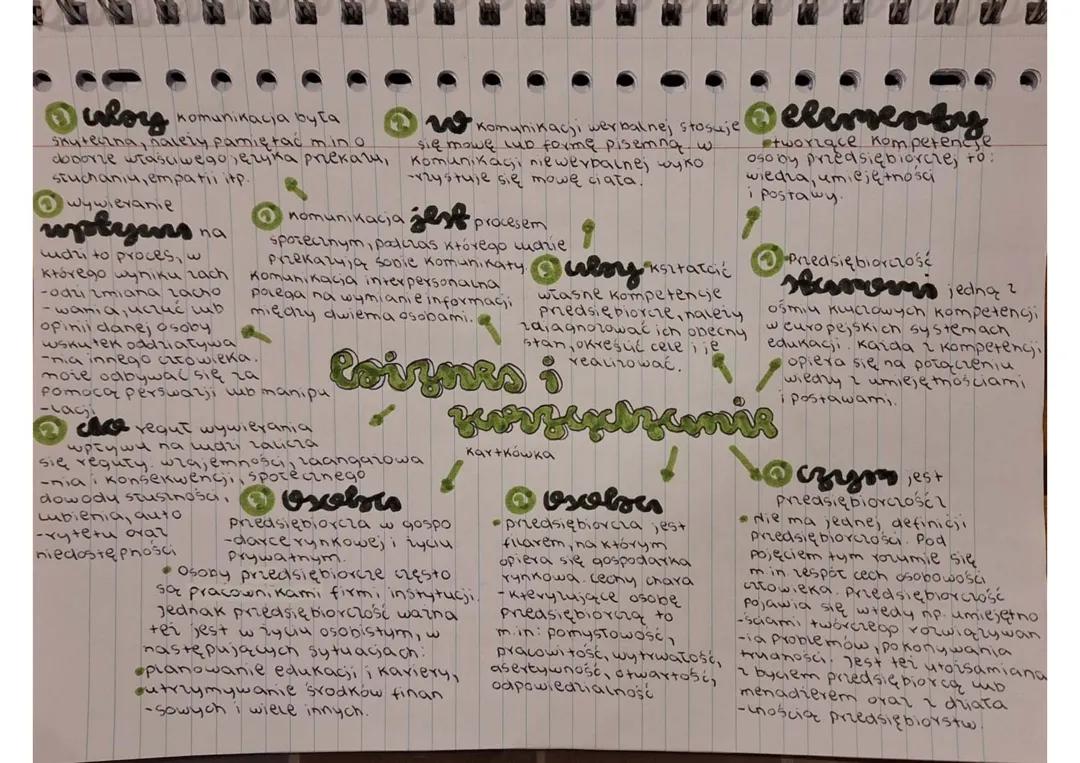 biznes i
zarządzanie
kartkówka
czym jest
przedsiębiorczość?
Nie ma jednej definicji
przedsiębiorczości. Pod
pojęciem tym rozumie się
m.in zespół cech osobowości
człowieka. Przedsiębiorczość
pojawia się wtedy np. umiejętno
-ściami twórczego rozwiązywan
-ia problemów, pokonywania
trudności. Jest też utożsamiana
z byciem przedsiębiorcą lub
menadżerem oraz z działa
-lnością przedsiębiorstw.
osoba
przedsiębiorcza jest
filarem, na którym
opiera się gospodarka
rynkowa. Cechy chara
-kteryzujące osobę
przedsiębiorczą to
m.in: pomysłowość,
pracowitość, wytrwałość,
asertywność, otwartość,
odpowiedzialność
osoba
przedsiębiorcza w gospo
-darce rynkowej i życiu
prywatnym.
Osoby przedsiębiorcze często
są pracownikami firm i instytucji.
Jednak przedsiębiorczość ważna
też jest w życiu osobistym, w
następujących sytuacjach:
planowanie edukacji i kariery,
utrzymywanie środków finan
-sowych i wiele innych.
Przedsiębiorczość
stanowi jedną z
ośmiu kluczowych kompetencji
w europejskich systemach
edukacji. Każda z kompetencji
opiera się na połączeniu
wiedzy z umiejętnościami
i postawami.
elementy
tworzące kompetencje
osoby przedsiębiorczej to:
wiedza, umiejętności
i postawy.
aby kształcić
własne kompetencje
przedsiębiorcze, należy
zdiagnozować ich obecny
stan, określić cele i je
realizować.
komunikacja jest procesem
społecznym, podczas którego ludzie
przekazują sobie komunikaty.
Komunikacja interpersonalna
polega na wymianie informacji
między dwiema osobami.
w komunikacji werbalnej stosuje
się mowę lub formę pisemną. w
komunikacji niewerbalnej wyko
-rzystuje się mowę ciała.
aby komunikacja była
skuteczna, należy pamiętać m.in o
doborze właściwego języka przekazu,
słuchaniu, empatii itp.
wywieranie
wpływu na
ludzi to proces, w
którego wyniku zach
-odzi zmiana zacho
-wania, uczuć lub
opinii danej osoby
wskutek oddziaływa
-nia innego człowieka.
może odbywać się za
pomocą perswazji lub manipu
-lacji
do reguł wywierania
wpływu na ludzi zalicza
się reguły: wzajemności, zaangażowa
-nia i konsekwencji, społecznego
dowodu słuszności,
lubienia, auto
-rytetu oraz
niedostępności